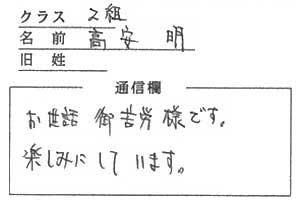 クラス 2組
名前 高安 明
旧姓
通信欄
お世話 御苦労様です。
楽しみにして います。